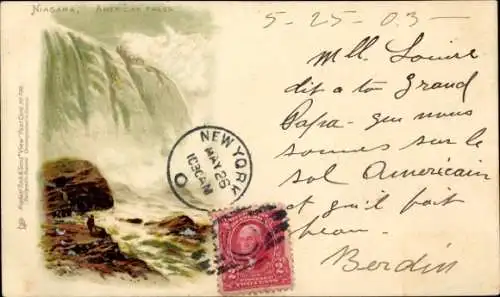 NIAGARA, AMERICAN FALLS
5-25-03-
Mll. Louise
dit a ton Grand
Papa- que nous
sommes sur le
sol Américain
et qu'il fait
beau.
Berdin
NEW YORK
MAY 26
1030AM
2 2
TWO CENTS
Raphael Tuck & Sons' "View" Post Card